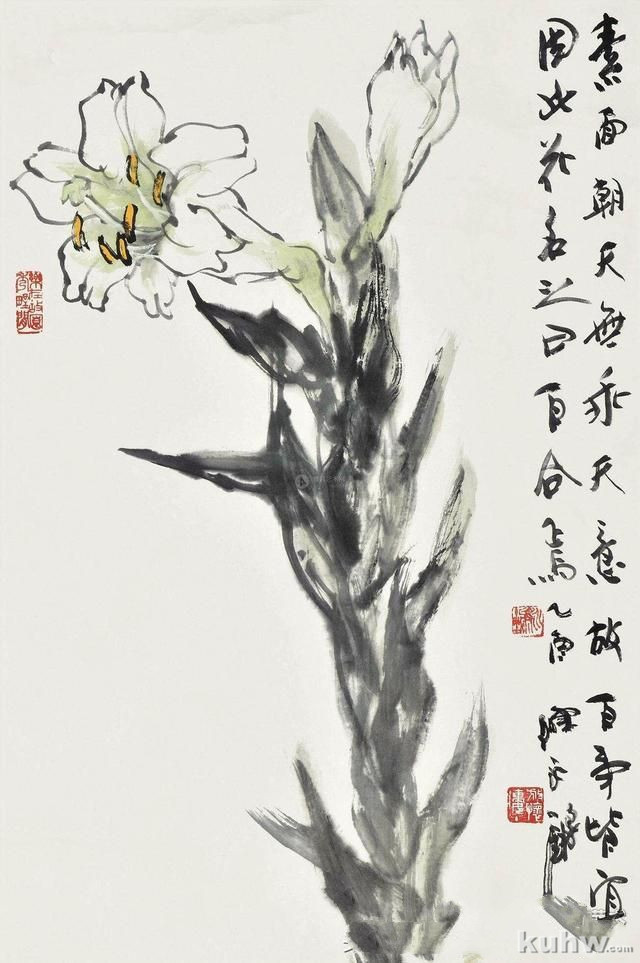 素面朝天無乖天意故百事皆宜
因此花名之曰百合焉乙酉
陳永鏘
kuhw.com